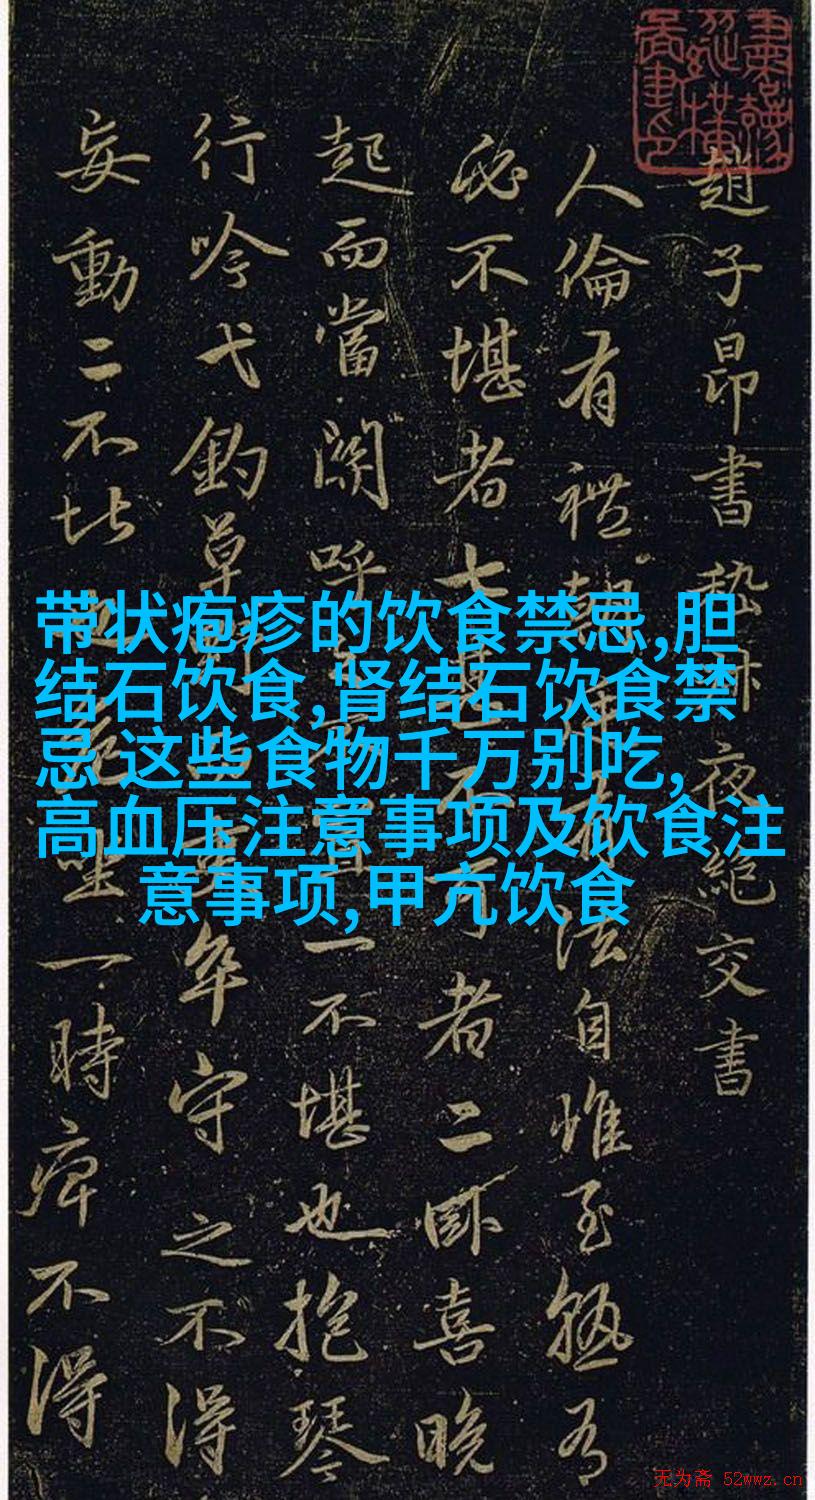 趙子昂書嵇叔夜絕交書
人倫有禮朝廷有法自惟至熟有
必不堪者七甚不可者二卧喜晚
起而當關呼之不置一不堪也抱琴
行吟弋釣草野而吏卒守之不得
妄動二不堪也危坐一時痺不得
带状疱疹的饮食禁忌,胆
结石饮食,肾结石饮食禁
忌 这些食物千万别吃,
高血压注意事项及饮食注
意事项,甲亢饮食
无为斋 52wwz.cn